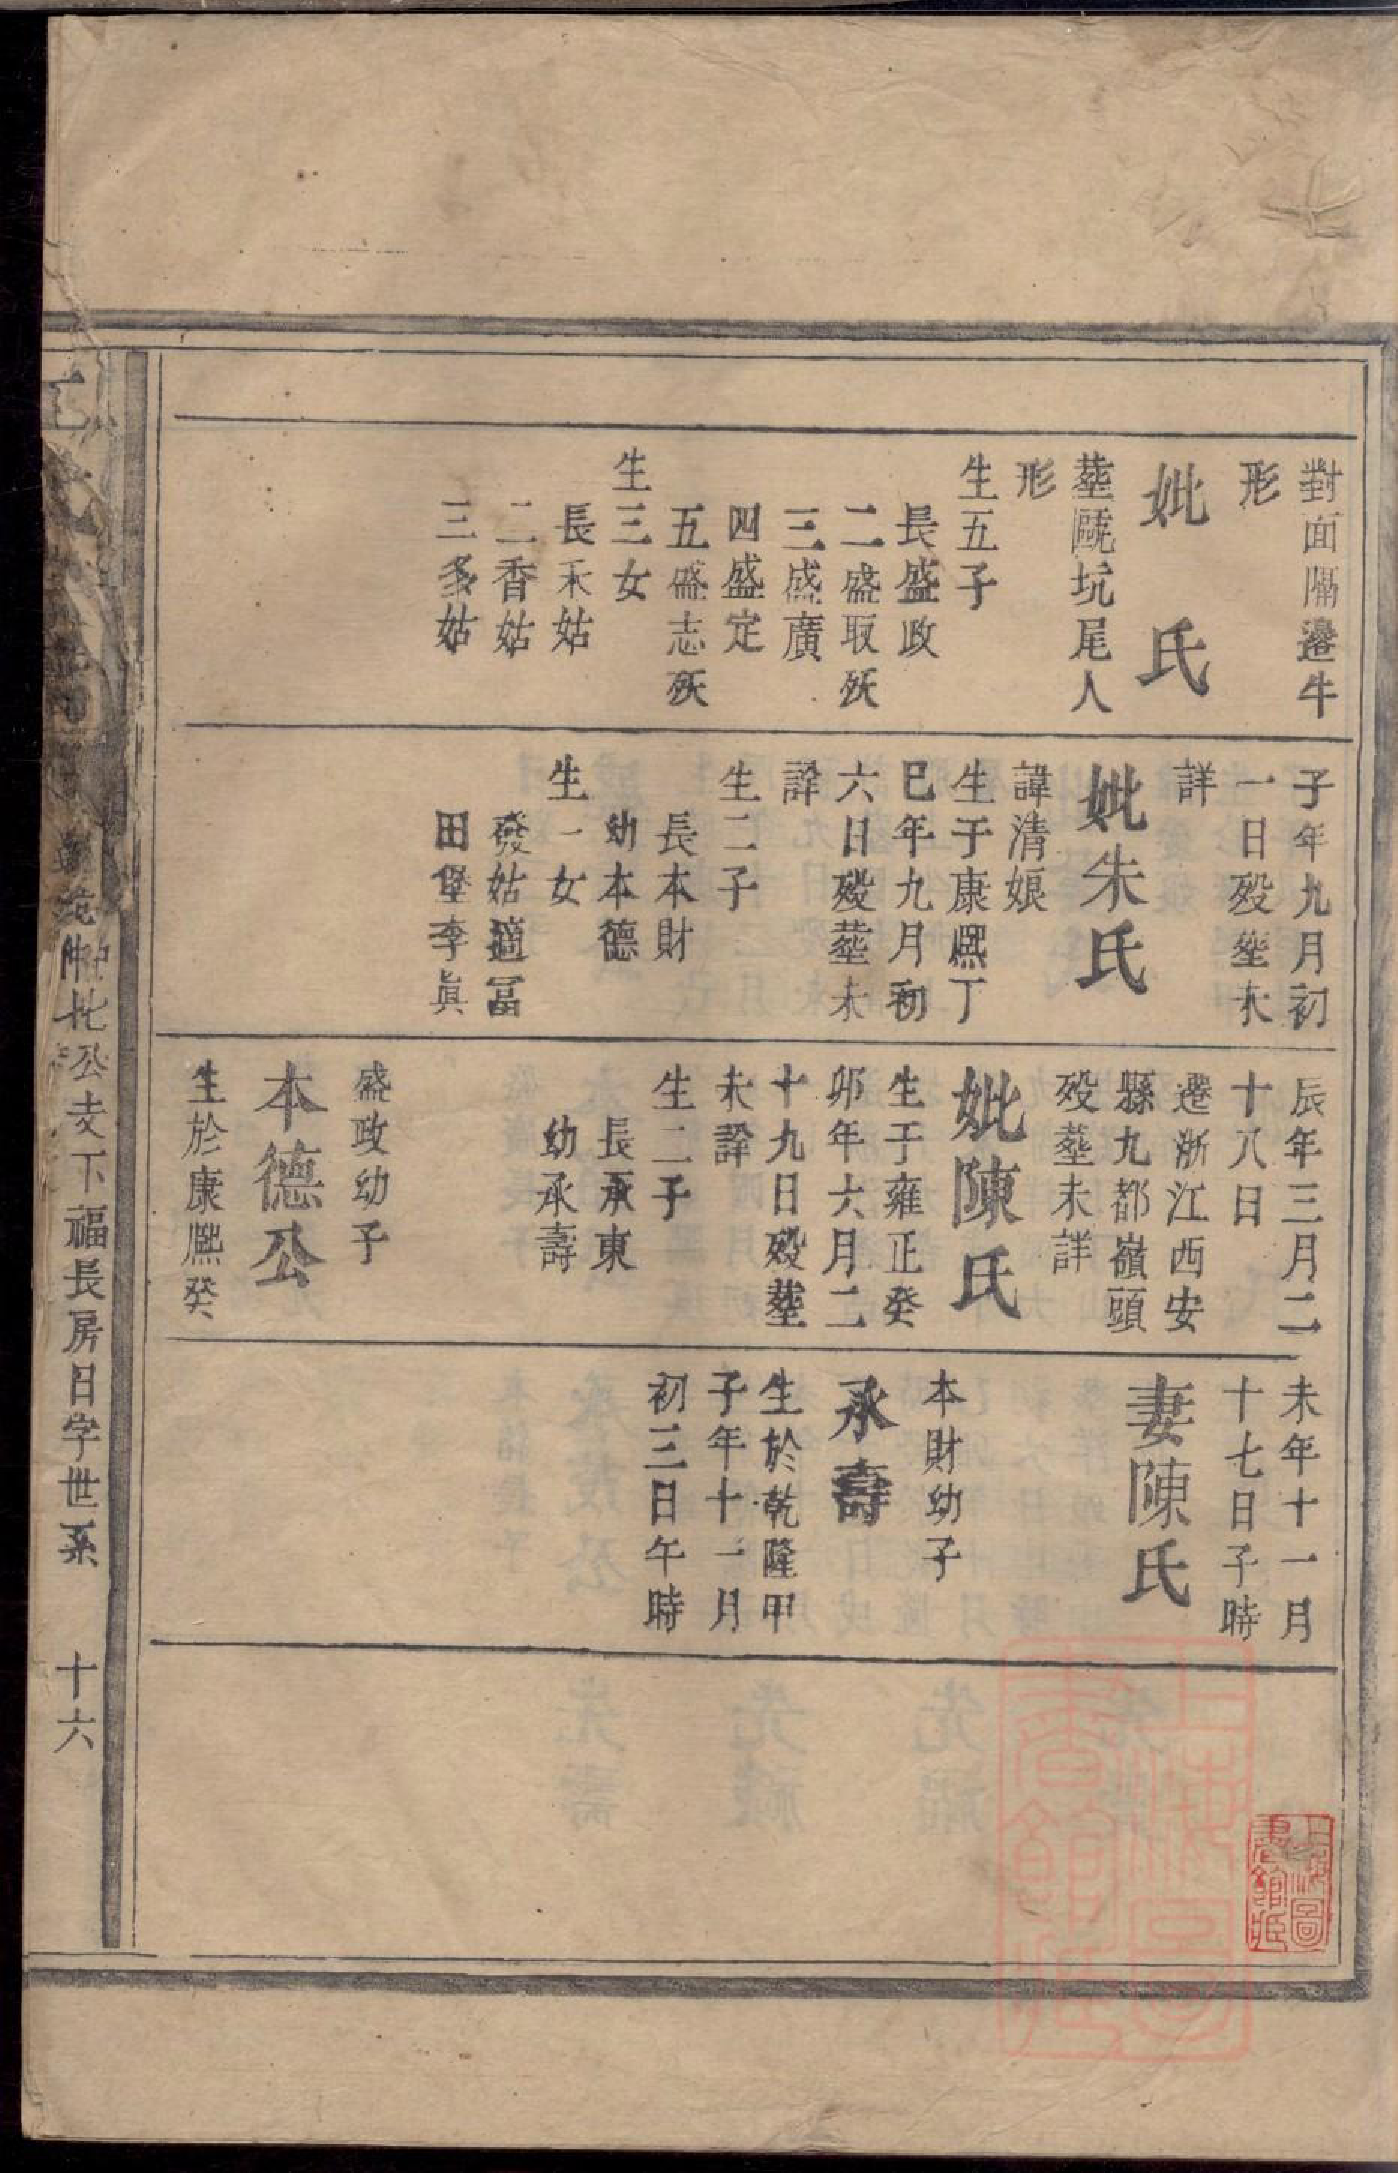 對面隔邉牛
形
妣氏
塟甌坑尾人
形
生五子
長盛政
二盛取殀
三盛廣
四盛定
五盛志殀
生三女
長禾姑
二香姑
三多姑
子年九月初
一日殁塟未
詳
妣朱氏
諱清娘
生于康熈丁
巳年九月初
六日殁塟未
詳
生二子
長本財
幼本德
生一女
發姑適冨
田堡李眞
辰年三月二
十八日
遷浙江西安
縣九都嶺頭
殁塟未詳
妣陳氏
生于雍正癸
卯年六月二
十九日殁塟
未詳
生二子
長承東
幼承壽
盛政幼子
本德公
生於康熈癸
未年十一月
十七日子時
妻陳氏
本財幼子
承壽
生於乾隆甲
子年十一月
初三日午時
公支下福長房日字世系
十六
上海圖
書館藏